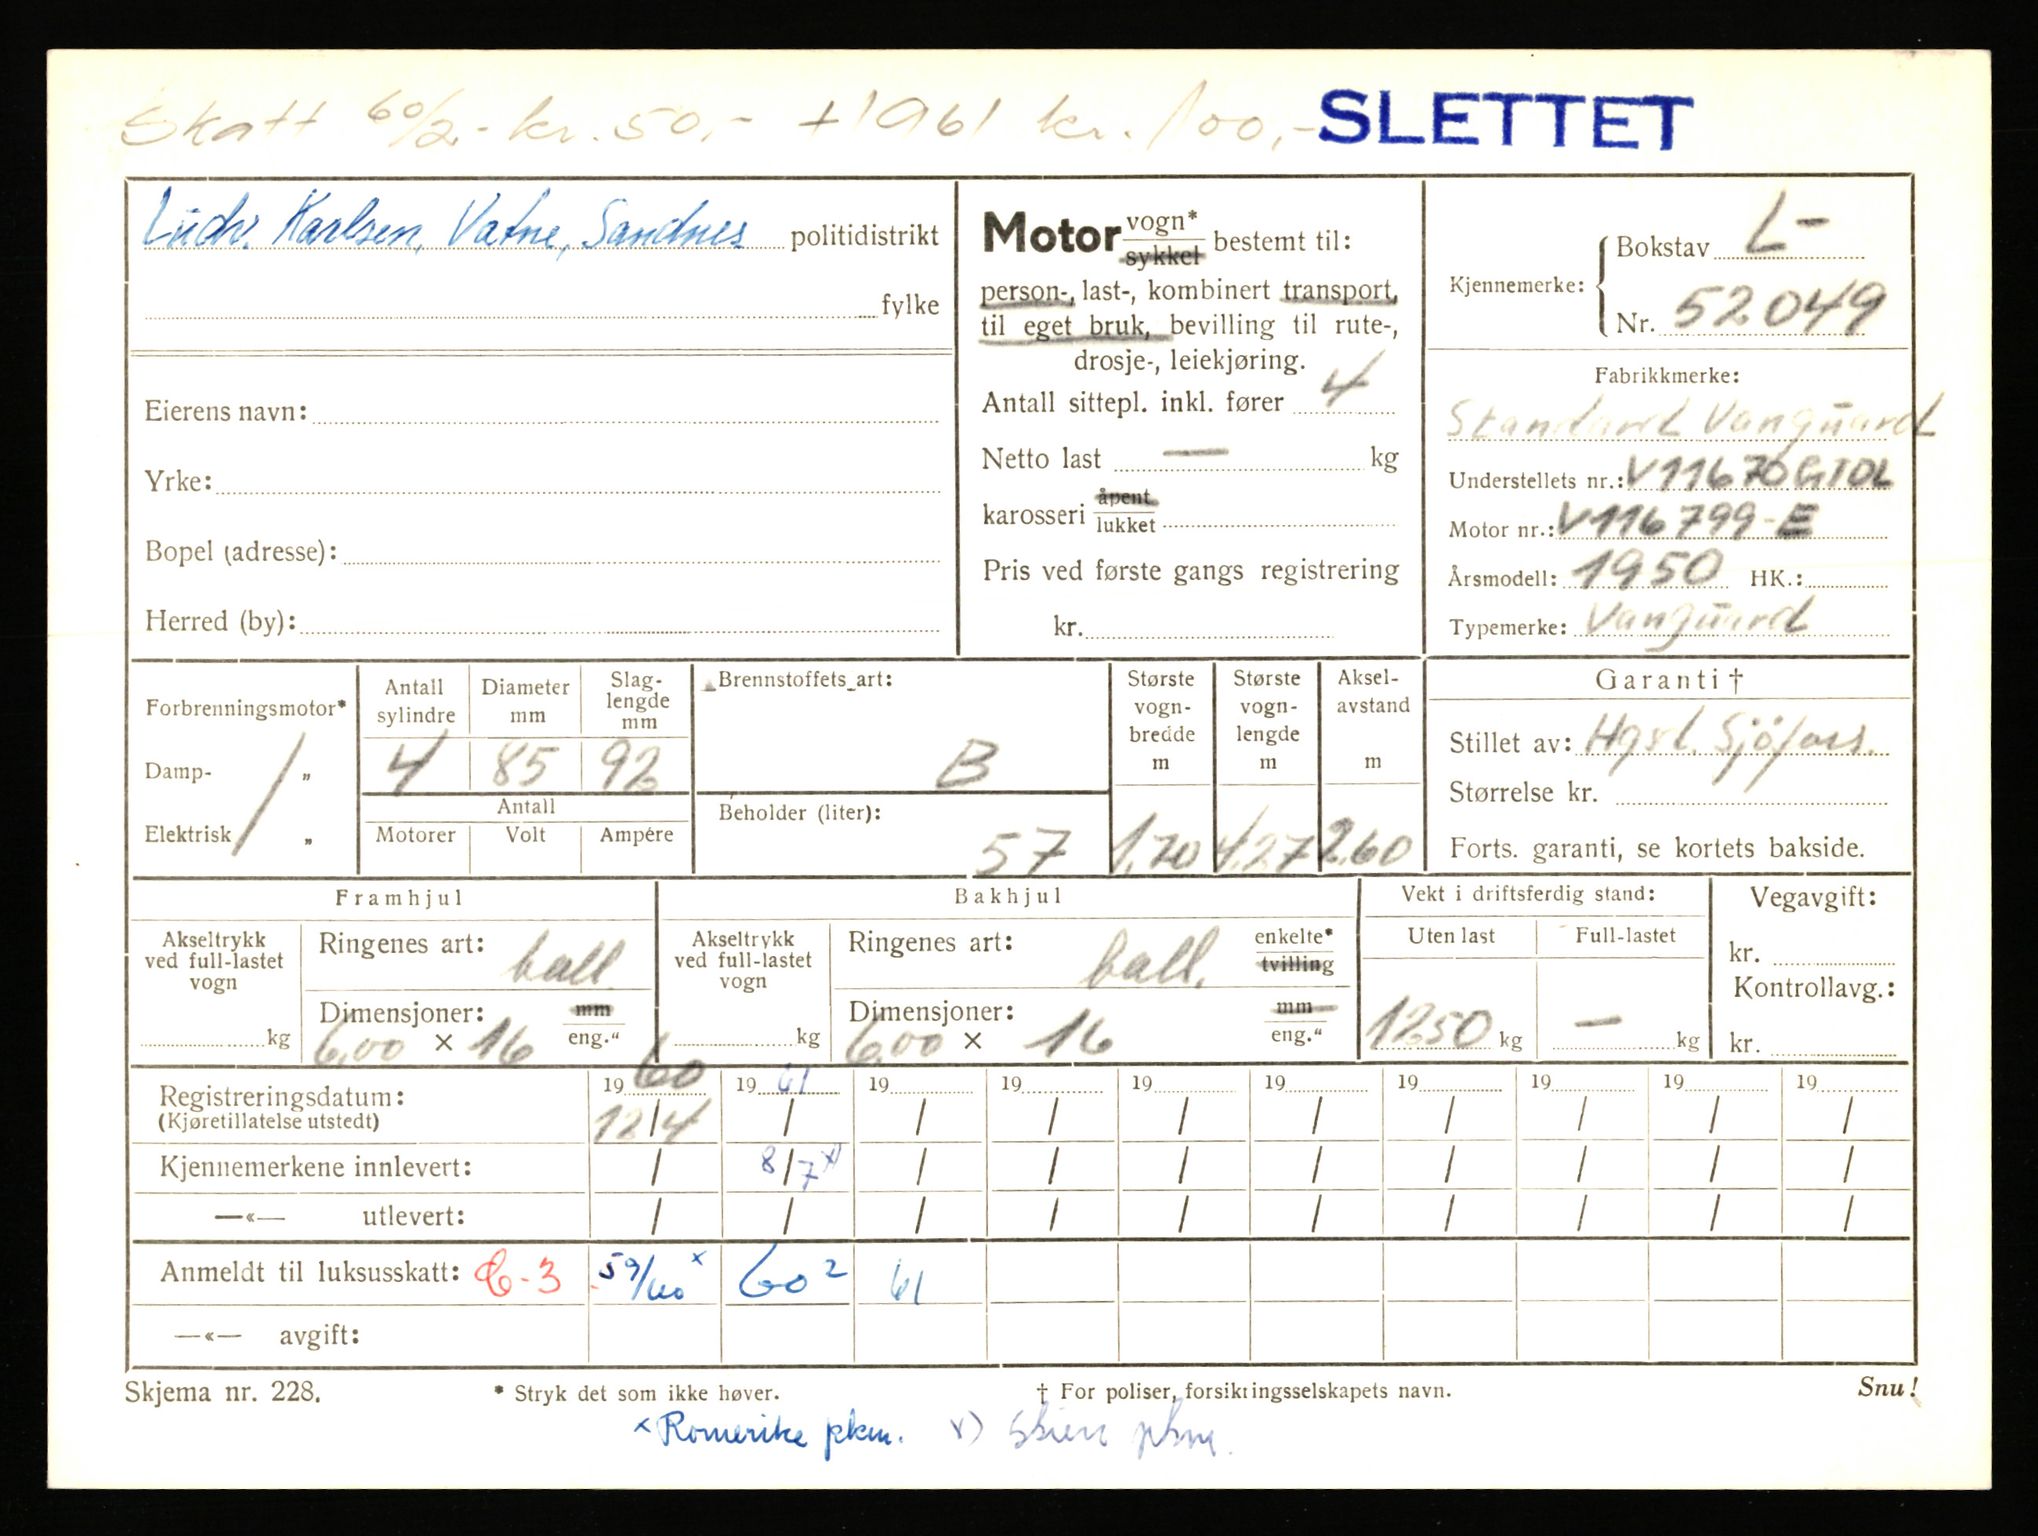 Skatt 60/2 - kr. 50,- + 1961 kr. 100,- SLETTET
Ludv. Karlsen, Vatne, Sandnes politidistrikt
fylke
Eierens navn:
Yrke:
Bopel (adresse):
Herred (by):
Motor vogn* sykkel bestemt til:
person-, last-, kombinert transport,
til eget bruk, bevilling til rute-,
drosje-, leiekjøring.
Antall sittepl. inkl. fører 4
Netto last — kg
karosseri åpent lukket
Pris ved første gangs registrering
kr.
Kjennemerke: Bokstav L-
Nr. 52049
Fabrikkmerke:
Standard Vanguard
Understellets nr.: V11670GTDL
Motor nr.: V116799-E
Årsmodell: 1950 HK.:
Typemerke: Vanguard
Forbrenningsmotor*
Damp- „
Elektrisk „
Antall sylindre Diameter mm Slag-lengde mm
4 85 92
Antall
Motorer Volt Ampére
Brennstoffets art:
B
Beholder (liter):
57
Største vogn-bredde m 1,70
Største vogn-lengde m 4,27
Aksel-avstand m 2.60
Garanti †
Stillet av: Hgsl. Sjöfors.
Størrelse kr.
Forts. garanti, se kortets bakside.
Framhjul
Akseltrykk ved full-lastet vogn kg
Ringenes art: ball.
Dimensjoner: mm
6,00 × 16 eng."
Bakhjul
Akseltrykk ved full-lastet vogn kg
Ringenes art: ball. enkelte* tvilling
Dimensjoner: mm
6,00 × 16 eng."
Vekt i driftsferdig stand:
Uten last Full-lastet
1250 kg — kg
Vegavgift:
kr.
Kontrollavg.:
kr.
Registreringsdatum: 19 60 19 61 19 19 19 19 19 19 19 19
(Kjøretillatelse utstedt) 12/4 / / / / / / / / /
Kjennemerkene innlevert: / 8/7 x) / / / / / / / /
—«— utlevert: / / / / / / / / / /
Anmeldt til luksusskatt: C-3 59/60 x 60 2 61
—«— avgift:
Skjema nr. 228. * Stryk det som ikke høver. † For poliser, forsikringsselskapets navn. Snu!
x Romerike pkm. x) Skien pkm.